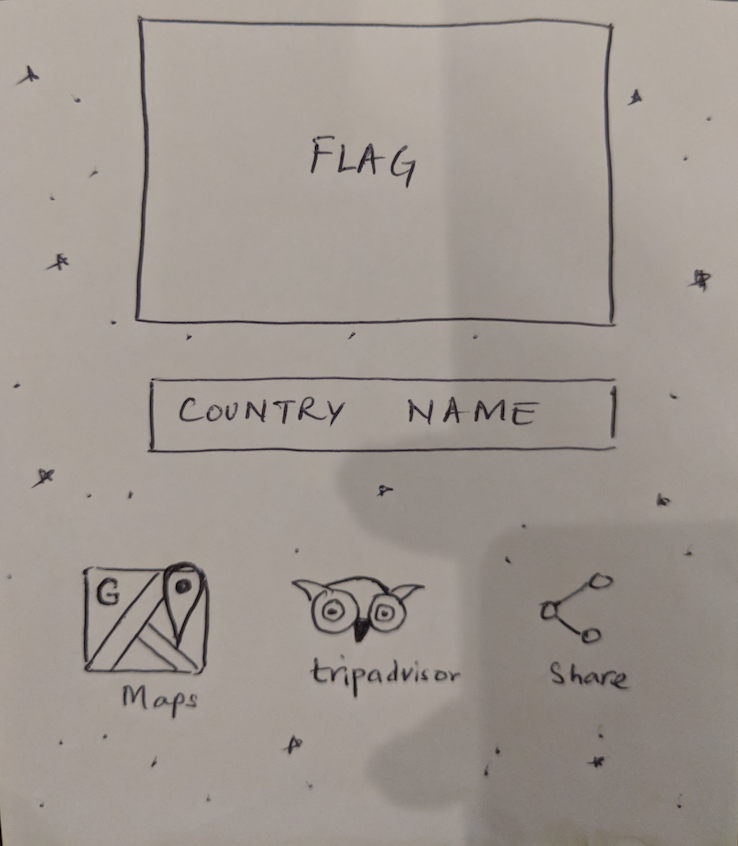 FLAG
COUNTRY NAME
G
Maps
tripadvisor
Share